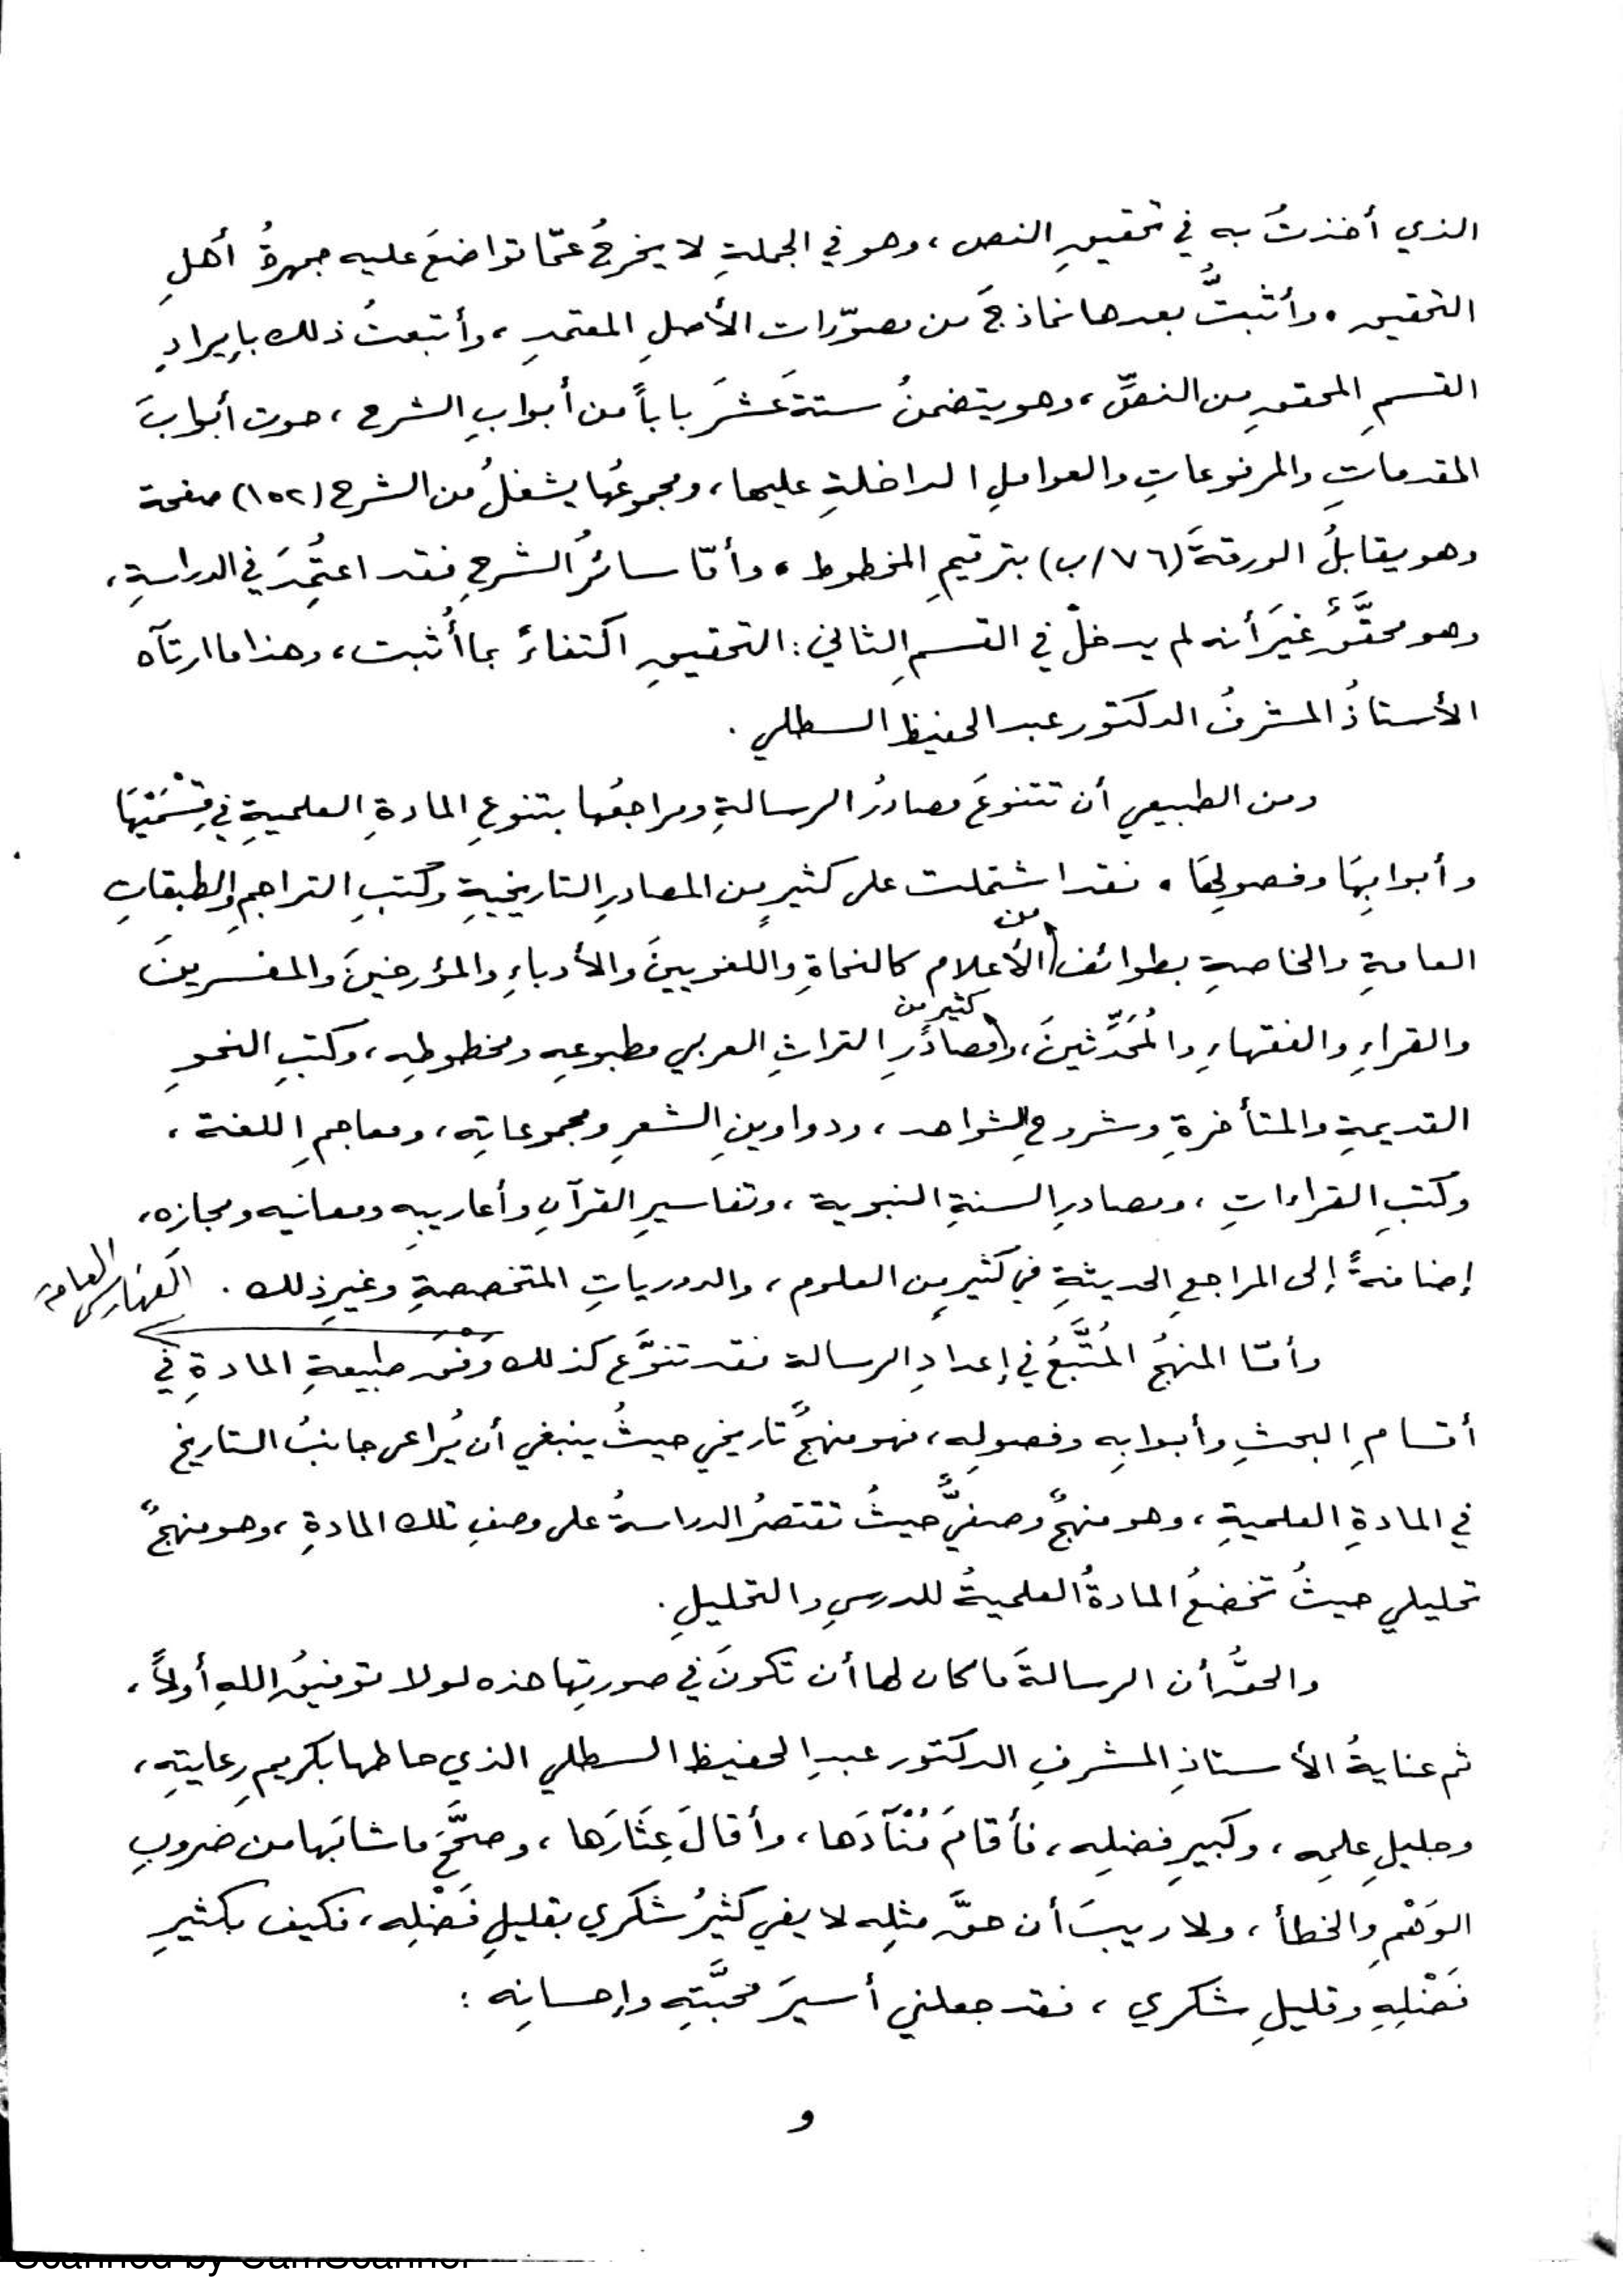 الذي أخذتُ به في تحقيقِ النص، وهو في الجملةِ لا يخرجُ عمّا تواضعَ عليه جمهرةُ أهلِ
التحقيق. وأثبتُّ بعدها نماذجَ من مصوّرات الأصلِ المعتمدِ، وأتبعتُ ذلك بإيرادِ
القسمِ المحققِ من النصِّ، وهو يتضمنُ ستةَ عَشَرَ باباً من أبوابِ الشرح، حوت أبوابَ
المقدماتِ والمرفوعاتِ والعواملِ الداخلةِ عليها، ومجموعُها يشغلُ من الشرح (١٥٢) صفحة
وهو يقابلُ الورقةَ (٧٦/ب) بترقيمِ المخطوط. وأمّا سائرُ الشرحِ فقد اعتُمِدَ في الدراسةِ،
وهو محقَّقٌ غيرَ أنه لم يدخلْ في القسمِ الثاني: التحقيقِ اكتفاءً بما أُثبت، وهذا ما ارتآه
الأستاذُ المشرفُ الدكتور عبد الحفيظ السطلي.
ومن الطبيعي أن تتنوعَ مصادرُ الرسالةِ ومراجعُها بتنوعِ المادةِ العلميةِ في قِسْمَيْهَا
وأبوابِهَا وفصولِهَا. فقد اشتملت على كثيرٍ من المصادرِ التاريخيةِ وكتبِ التراجمِ والطبقاتِ
العامةِ والخاصةِ بطوائفَ من الأعلام كالنحاةِ واللغويينَ والأدباءِ والمؤرخينَ والمفسرينَ
والقراءِ والفقهاءِ والمُحَدِّثينَ، وكثير من مصادرِ التراثِ العربي مطبوعِهِ ومخطوطِه، وكتبِ النحوِ
القديمةِ والمتأخرةِ وشروحِ الشواهد، ودواوينِ الشعرِ ومجموعاتِه، ومعاجمِ اللغة،
وكتبِ القراءاتِ، ومصادرِ السنةِ النبوية، وتفاسيرِ القرآنِ وأعاريبِهِ ومعانيه ومجازِه،
إضافةً إلى المراجعِ الحديثةِ في كثيرٍ من العلوم، والدورياتِ المتخصصةِ وغيرِ ذلك. الفهارس العامة
وأمّا المنهجُ المُتَّبَعُ في إعدادِ الرسالة فقد تنوَّع كذلك وَفْقَ طبيعةِ المادةِ في
أقسامِ البحثِ وأبوابِه وفصولِه، فهو منهجٌ تاريخي حيثُ ينبغي أن يُراعى جانبُ التاريخ
في المادةِ العلميةِ، وهو منهجٌ وصفيٌّ حيثُ تقتصرُ الدراسةُ على وصفِ تلك المادةِ، وهو منهجٌ
تحليلي حيثُ تخضعُ المادةُ العلميةُ للدرسِ والتحليلِ.
والحقُّ أن الرسالةَ ما كان لها أن تكونَ في صورتِها هذه لولا توفيقُ اللهِ أولاً،
ثم عنايةُ الأستاذِ المشرفِ الدكتور عبدِ الحفيظ السطلي الذي حاطها بكريمِ رعايتِه،
وجليلِ علمِه، وكبيرِ فضلِه، فأقامَ مُنْآدَها، وأقالَ عِثَارَها، وصحَّحَ ما شابَها من ضروبِ
الوَهْمِ والخطأ، ولا ريبَ أن حقَّ مثلِه لا يفي كثيرُ شكري بقليلِ فَضْلِه، فكيف بكثيرِ
فَضْلِهِ وقليلِ شكري، فقد جعلني أسيرَ محبَّتِهِ وإحسانِه:
و
Scanned by CamScanner